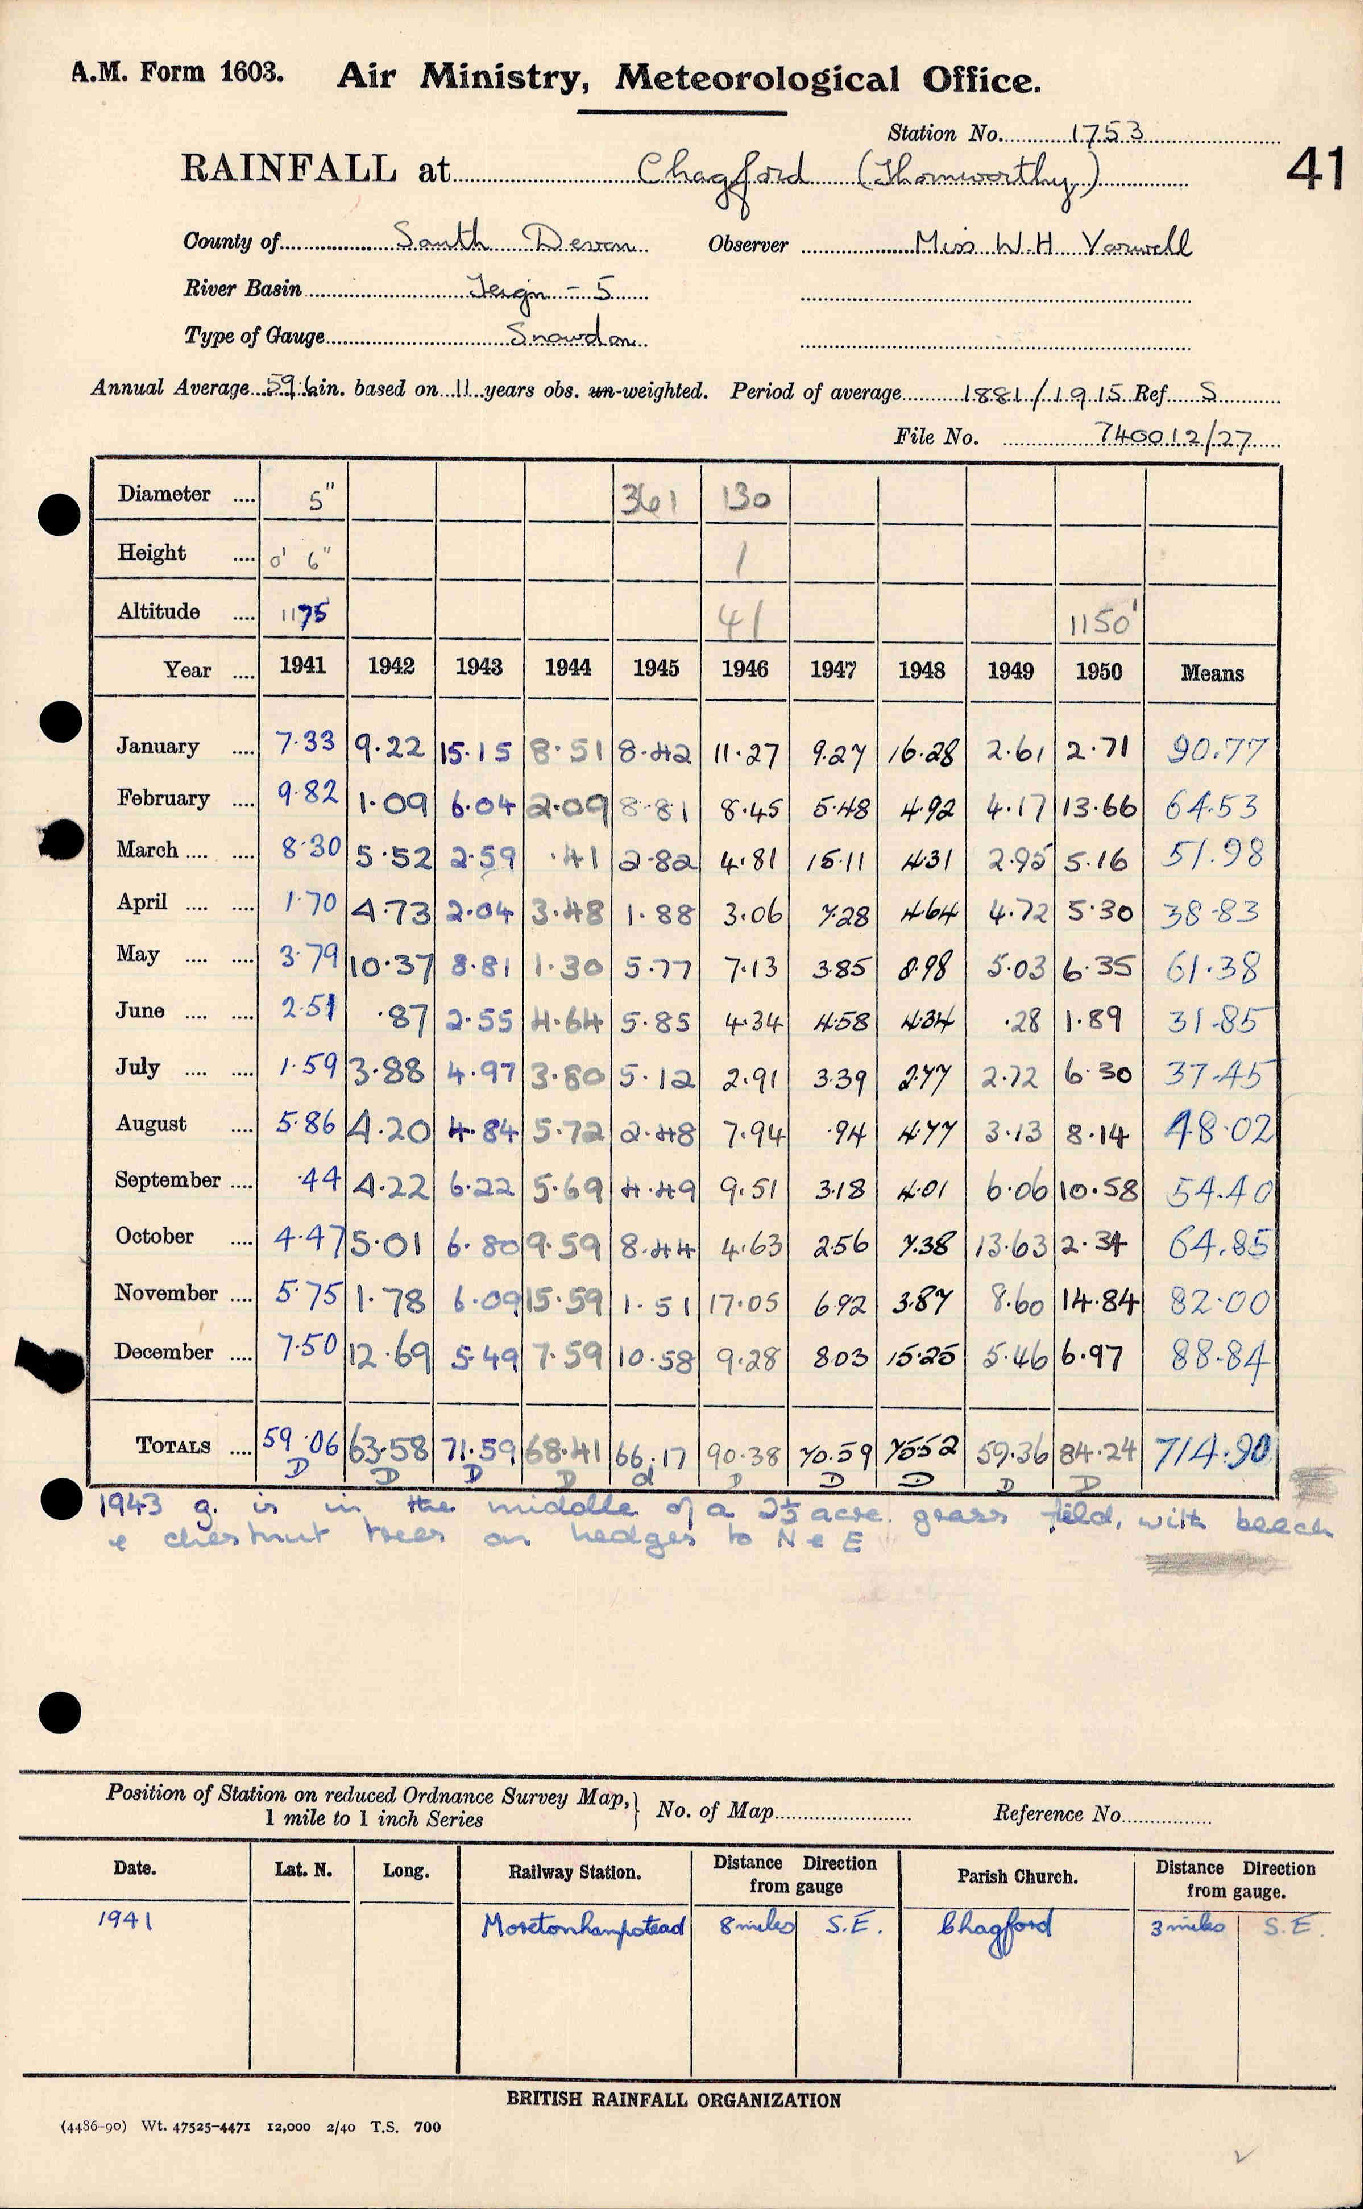 A.M. Form 1603. Air Ministry, Meteorological Office.
Station No. 1753
41
RAINFALL at Chagford (Thornworthy)
County of South Devon Observer Miss W.H Varwell
River Basin Teign - 5
Type of Gauge Snowdon
Annual Average 59.6 in. based on 11 years obs. un-weighted. Period of average 1881/1915 Ref S
File No. 740012/27
Diameter .... 5" 361 130
Height .... 0' 6" 1
Altitude .... 1175 41 1150'
Year .... 1941 1942 1943 1944 1945 1946 1947 1948 1949 1950 Means
January .... 7.33 9.22 15.15 8.51 8.42 11.27 9.27 16.28 2.61 2.71 90.77
February .... 9.82 1.09 6.04 2.09 8.81 8.45 5.48 4.92 4.17 13.66 64.53
March .... .... 8.30 5.52 2.59 .41 2.82 4.81 15.11 4.31 2.95 5.16 51.98
April .... .... 1.70 4.73 2.04 3.48 1.88 3.06 7.28 4.64 4.72 5.30 38.83
May .... .... 3.79 10.37 8.81 1.30 5.77 7.13 3.85 8.98 5.03 6.35 61.38
June .... .... 2.51 .87 2.55 4.64 5.85 4.34 4.58 4.34 .28 1.89 31.85
July .... .... 1.59 3.88 4.97 3.80 5.12 2.91 3.39 2.77 2.72 6.30 37.45
August .... 5.86 4.20 4.84 5.72 2.48 7.94 .94 4.77 3.13 8.14 48.02
September .... .44 4.22 6.22 5.69 4.49 9.51 3.18 4.01 6.06 10.58 54.40
October .... 4.47 5.01 6.80 9.59 8.44 4.63 2.56 7.38 13.63 2.34 64.85
November .... 5.75 1.78 6.09 15.59 1.51 17.05 6.92 3.87 8.60 14.84 82.00
December .... 7.50 12.69 5.49 7.59 10.58 9.28 8.03 15.25 5.46 6.97 88.84
TOTALS .... 59.06 63.58 71.59 68.41 66.17 90.38 70.59 75.52 59.36 84.24 714.90
D D D D d D D D D D
1943 g. is in the middle of a 2½ acre grass field, with beech
& chestnut trees on hedges to N & E
Position of Station on reduced Ordnance Survey Map, } No. of Map Reference No.
1 mile to 1 inch Series
Date. Lat. N. Long. Railway Station. Distance Direction from gauge Parish Church. Distance Direction from gauge.
1941 Moretonhampstead 8 miles S.E. Chagford 3 miles S.E.
BRITISH RAINFALL ORGANIZATION
(4486-90) Wt. 47525-4471 12,000 2/40 T.S. 700